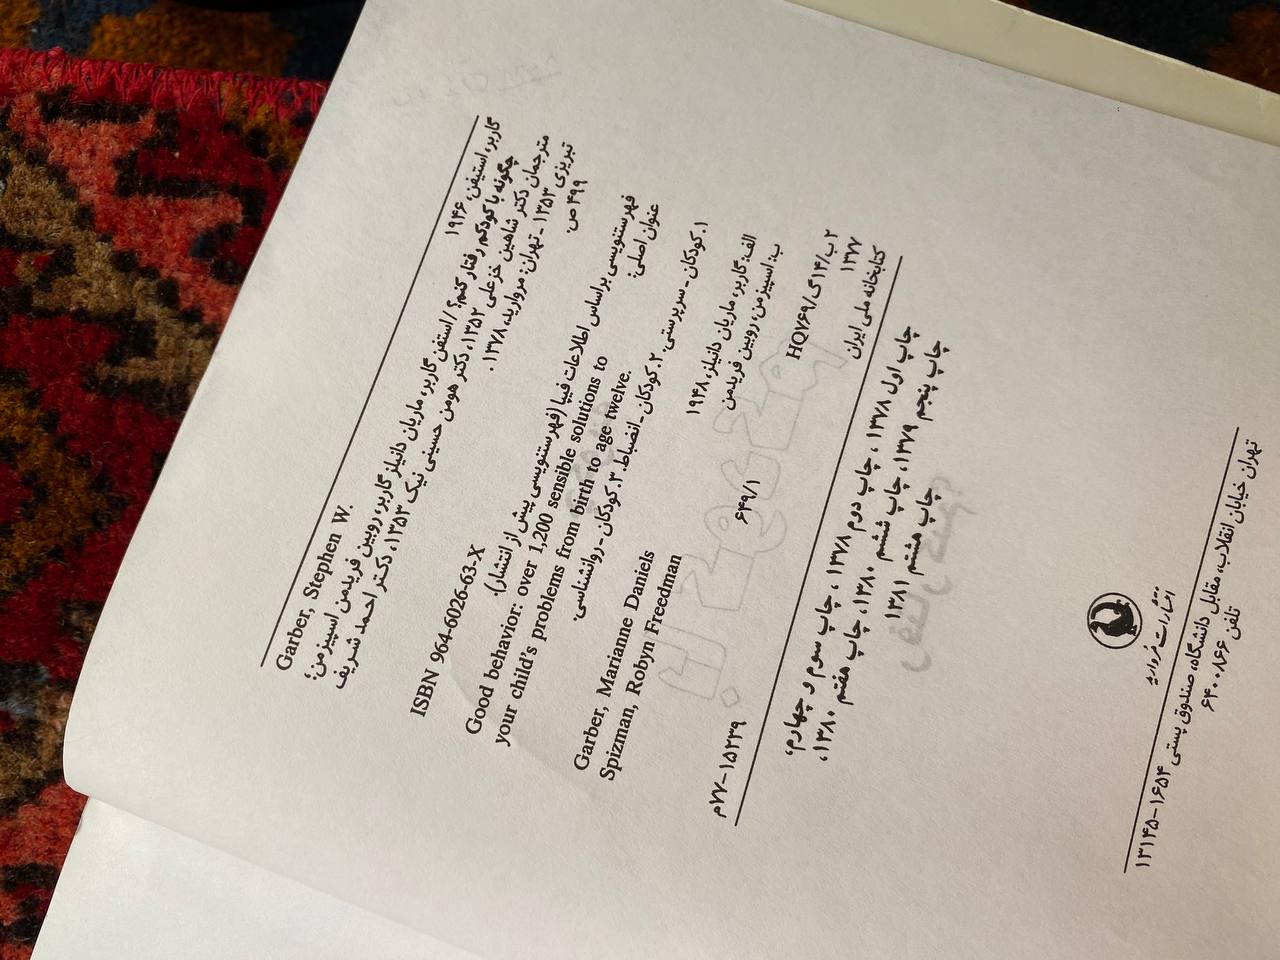 گاربر، استیفن، ۱۹۴۶
Garber, Stephen W.
چگونه با کودکم رفتار کنم؟ / استفن گاربر، ماریان دانیلز گاربر، روبین فریدمن اسپیزمن؛
مترجمان دکتر شاهین خزعلی ۱۳۵۲، دکتر هومن حسینی نیک ۱۳۵۳، دکتر احمد شریف
تبریزی ۱۳۵۳ - تهران: مروارید، ۱۳۷۸.
۴۹۹ ص.
ISBN 964-6026-63-X
فهرستنویسی براساس اطلاعات فیپا (فهرستنویسی پیش از انتشار).
عنوان اصلی:
Good behavior: over 1,200 sensible solutions to
your child's problems from birth to age twelve.
۱. کودکان - سرپرستی. ۲. کودکان - انضباط. ۳. کودکان - روانشناسی.
الف: گاربر، ماریان دانیلز، ۱۹۴۸
Garber, Marianne Daniels
ب: اسپیزمن، روبین فریدمن
Spizman, Robyn Freedman
۲ ب/۱۴گ/HQ۷۶۹
۶۴۹/۱
۱۳۷۷
کتابخانه ملی ایران
۱۵۲۳۹-۷۷م
چاپ اول ۱۳۷۸، چاپ دوم ۱۳۷۸، چاپ سوم و چهارم،
چاپ پنجم ۱۳۷۹، چاپ ششم ۱۳۸۰، چاپ هفتم ۱۳۸۰،
چاپ هشتم ۱۳۸۱
انتشارات مروارید
تهران خیابان انقلاب، مقابل دانشگاه، صندوق پستی ۱۶۵۴-۱۳۱۴۵
تلفن ۶۴۰۰۸۶۶